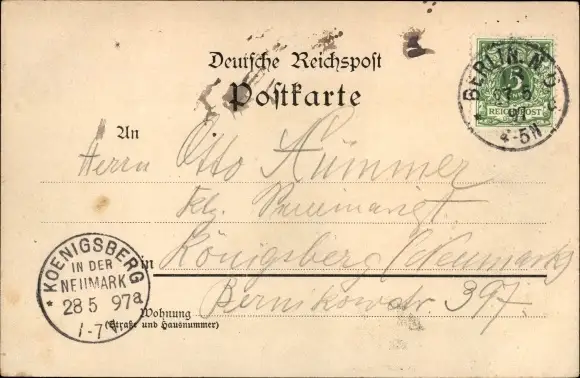 Deutsche Reichspost
Postkarte
BERLIN. N.
5
REICHSPOST
97
4-5N
An
Herrn Otto Kümmer
Königsberg (Neumark)
in
Bernikowstr. 397.
Wohnung
(Straße und Hausnummer)
* KOENIGSBERG
IN DER
NEUMARK
28 5 97 a